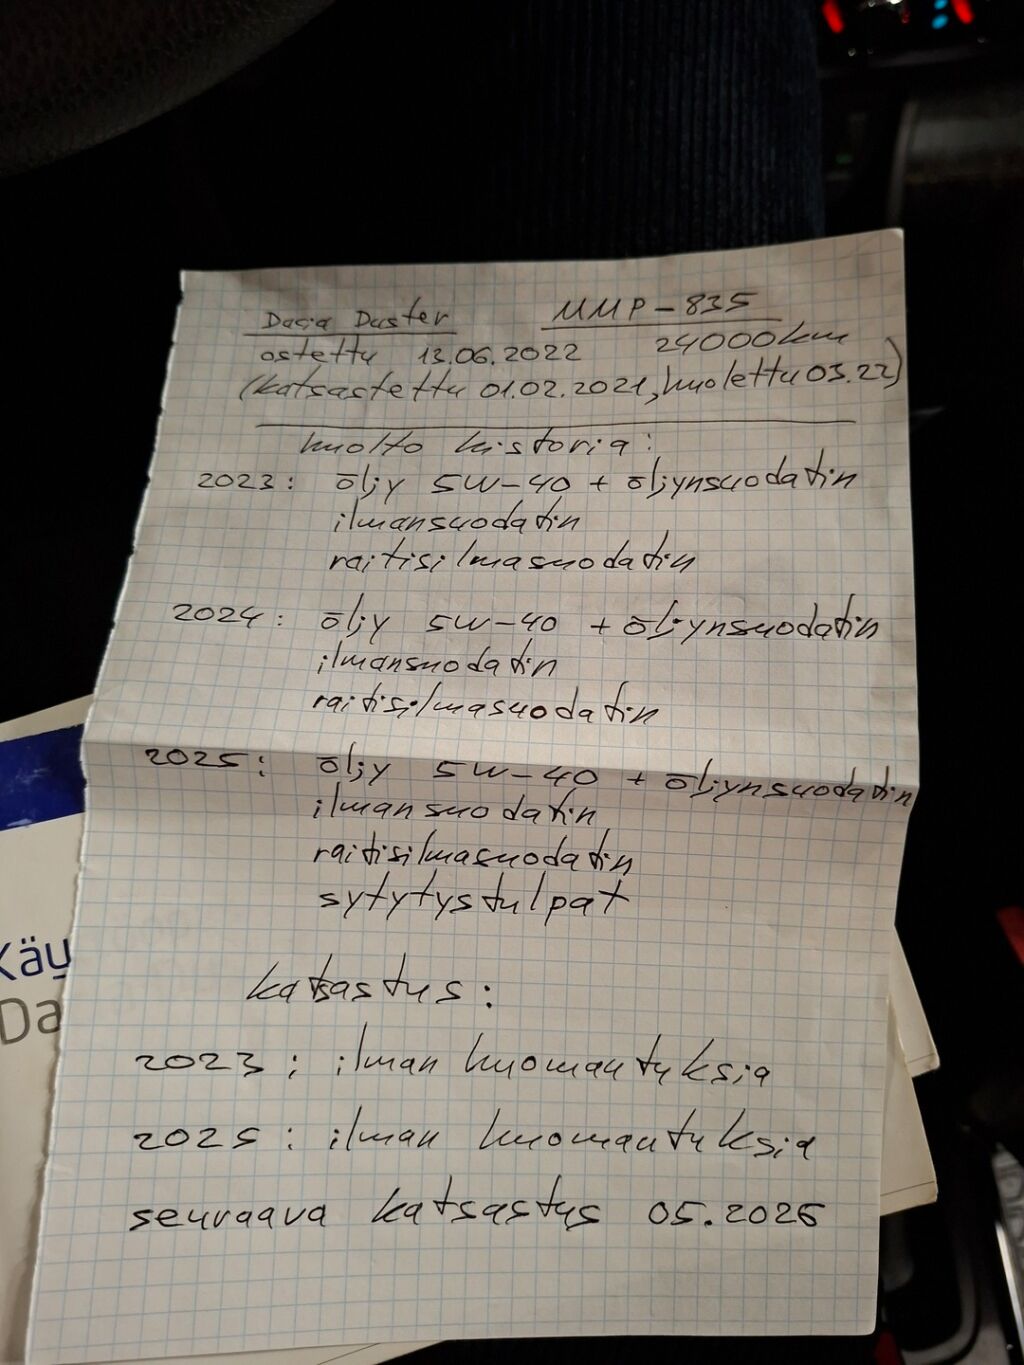 Dacia Duster MMP-835
ostettu 13.06.2022 24000km
(katsastettu 01.02.2021, huolettu 03.22)
huolto historia:
2023: õljy 5W-40 + õljynsuodatin
ilmansuodatin
raitisilmasuodatin
2024: õljy 5W-40 + õljynsuodatin
ilmansuodatin
raitisilmasuodatin
2025: õljy 5W-40 + õljynsuodatin
ilmansuodatin
raitisilmasuodatin
sytytystulpat
katsastus:
2023: ilman huomautuksia
2025: ilman huomautuksia
seuraava katsastus 05.2026
Käy
Da